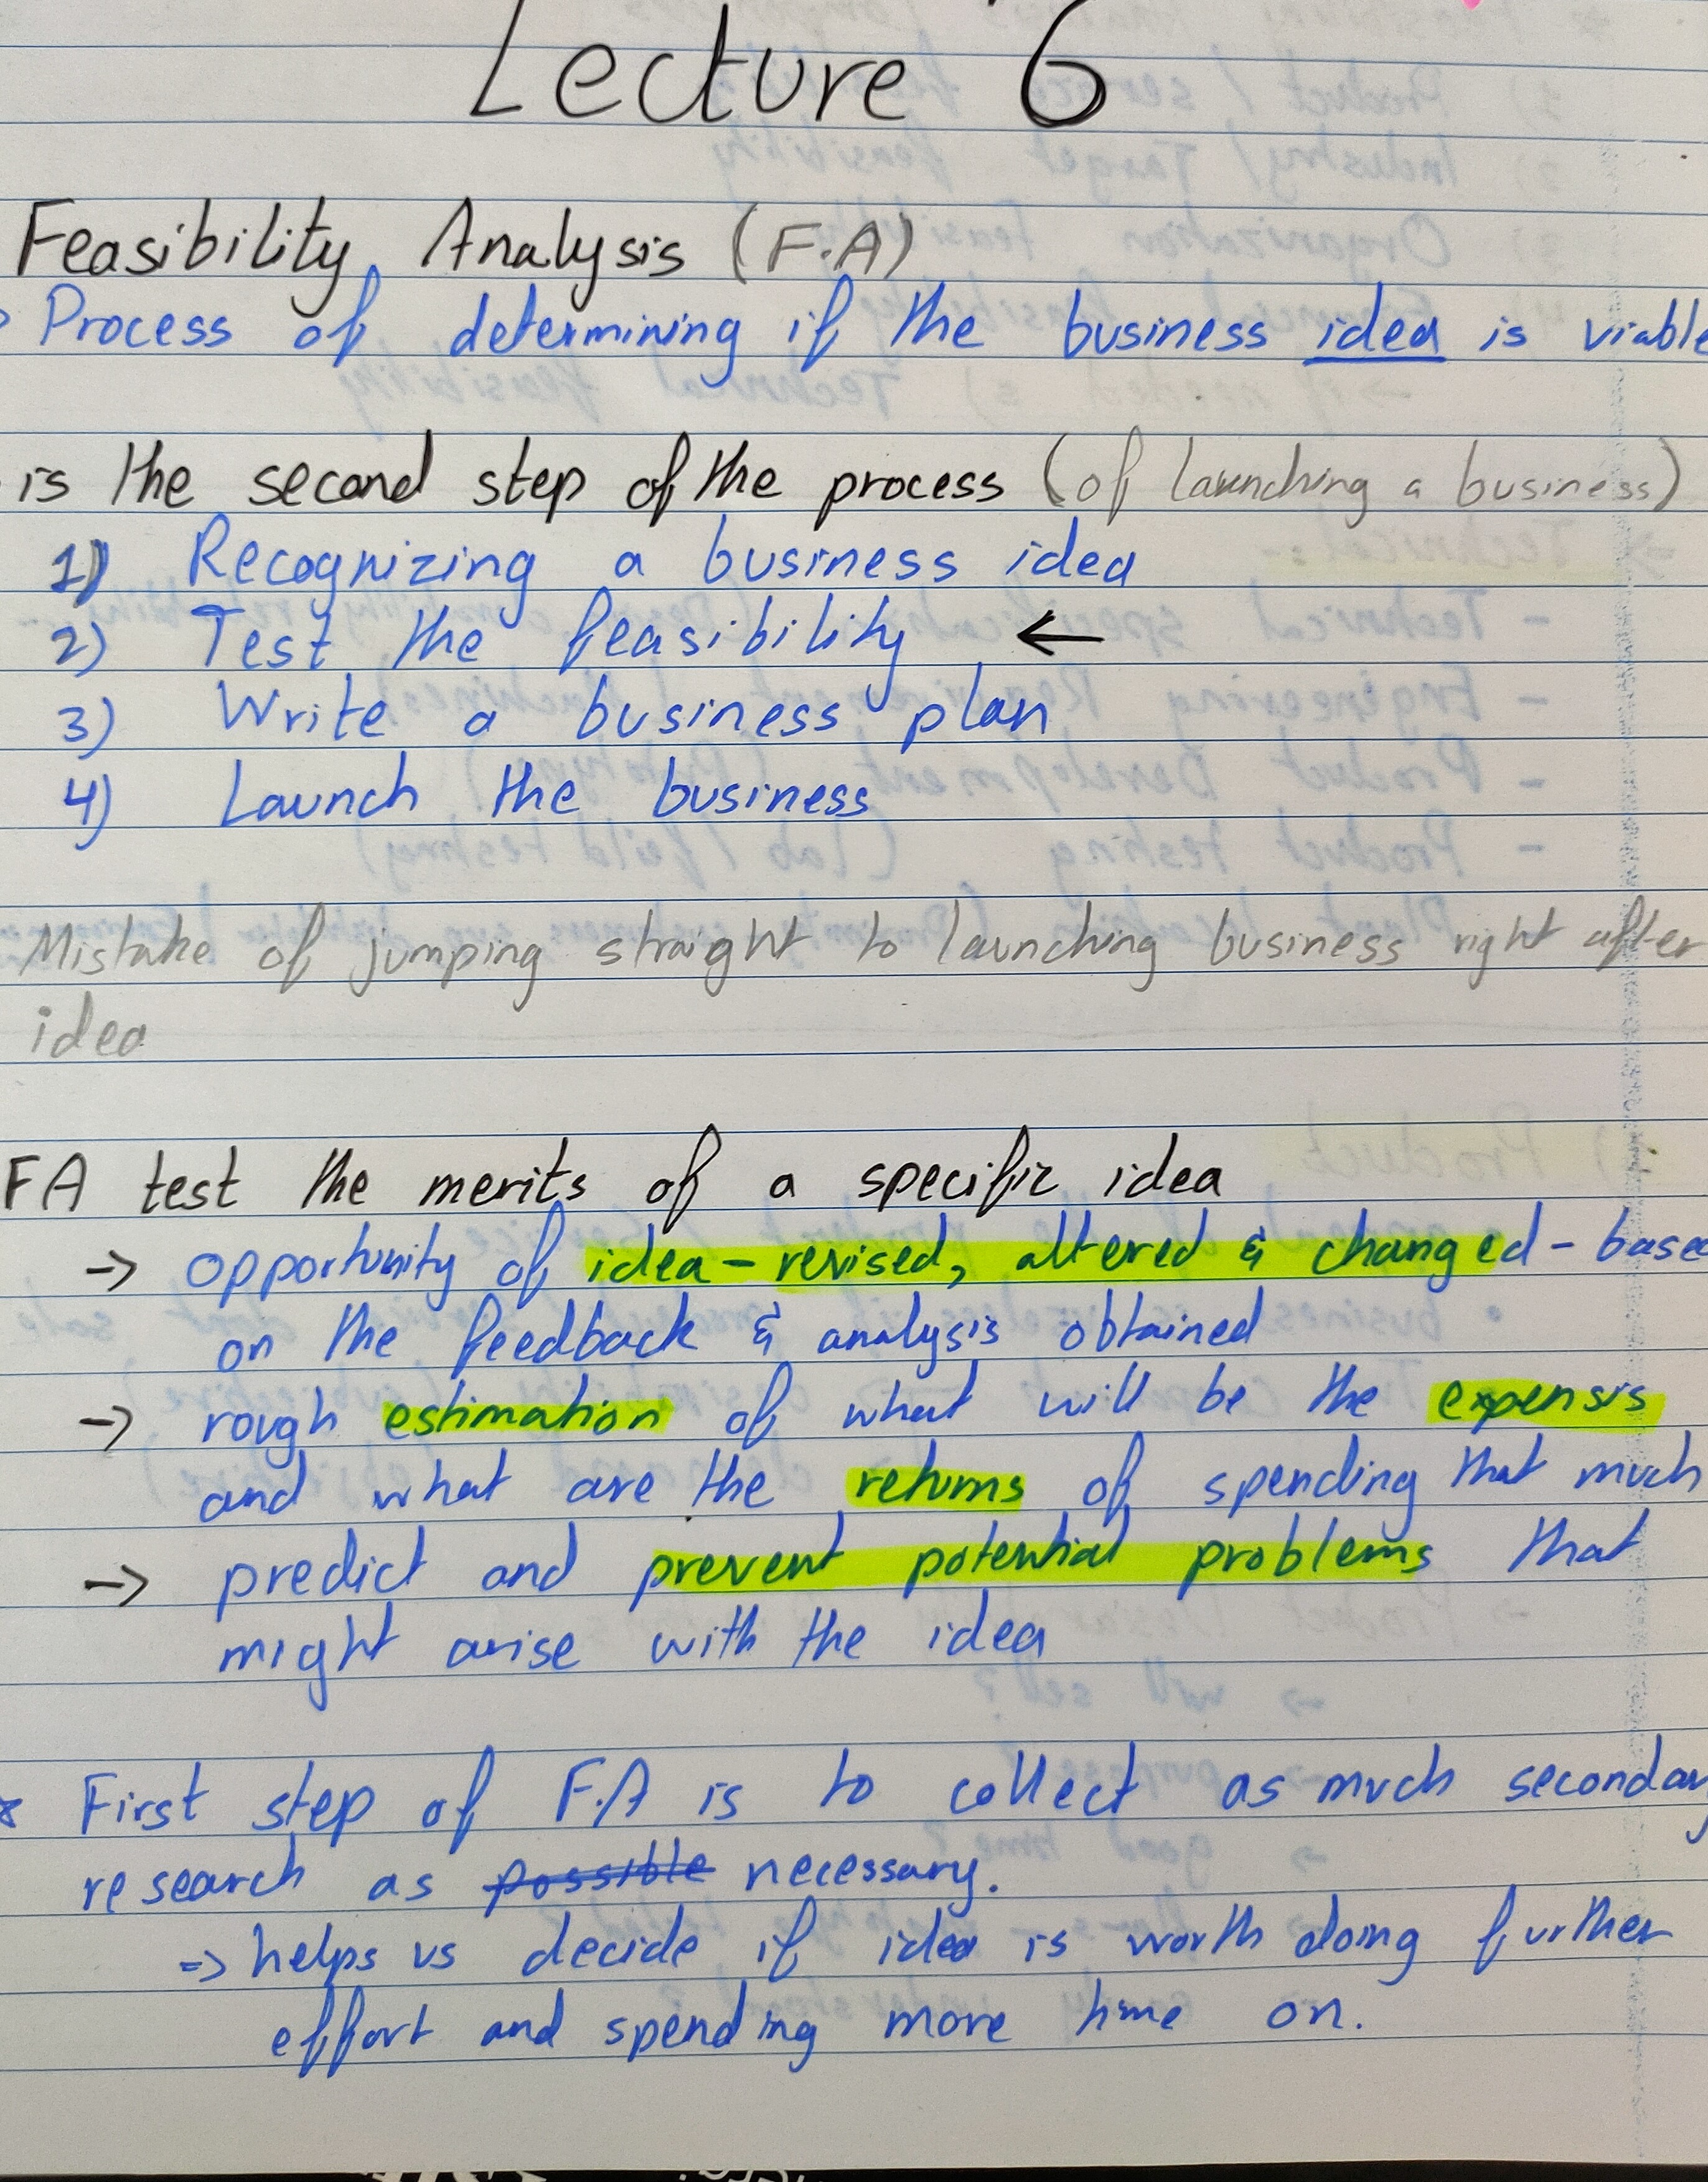 Lecture 6
Feasibility Analysis (F.A)
Process of determining if the business idea is viable
is the second step of the process (of launching a business)
1) Recognizing a business idea
2) Test the feasibility ←
3) Write a business plan
4) Launch the business
Mistake of jumping straight to launching business right after
idea
FA test the merits of a specific idea
-> opportunity of idea - revised, altered & changed - base
on the feedback & analysis obtained
-> rough estimation of what will be the expensis
and what are the returns of spending that much
-> predict and prevent potential problems that
might arise with the idea
* First step of F.A is to collect as much secondary
research as possible necessary.
=> helps us decide if idea is worth doing further
effort and spending more time on.